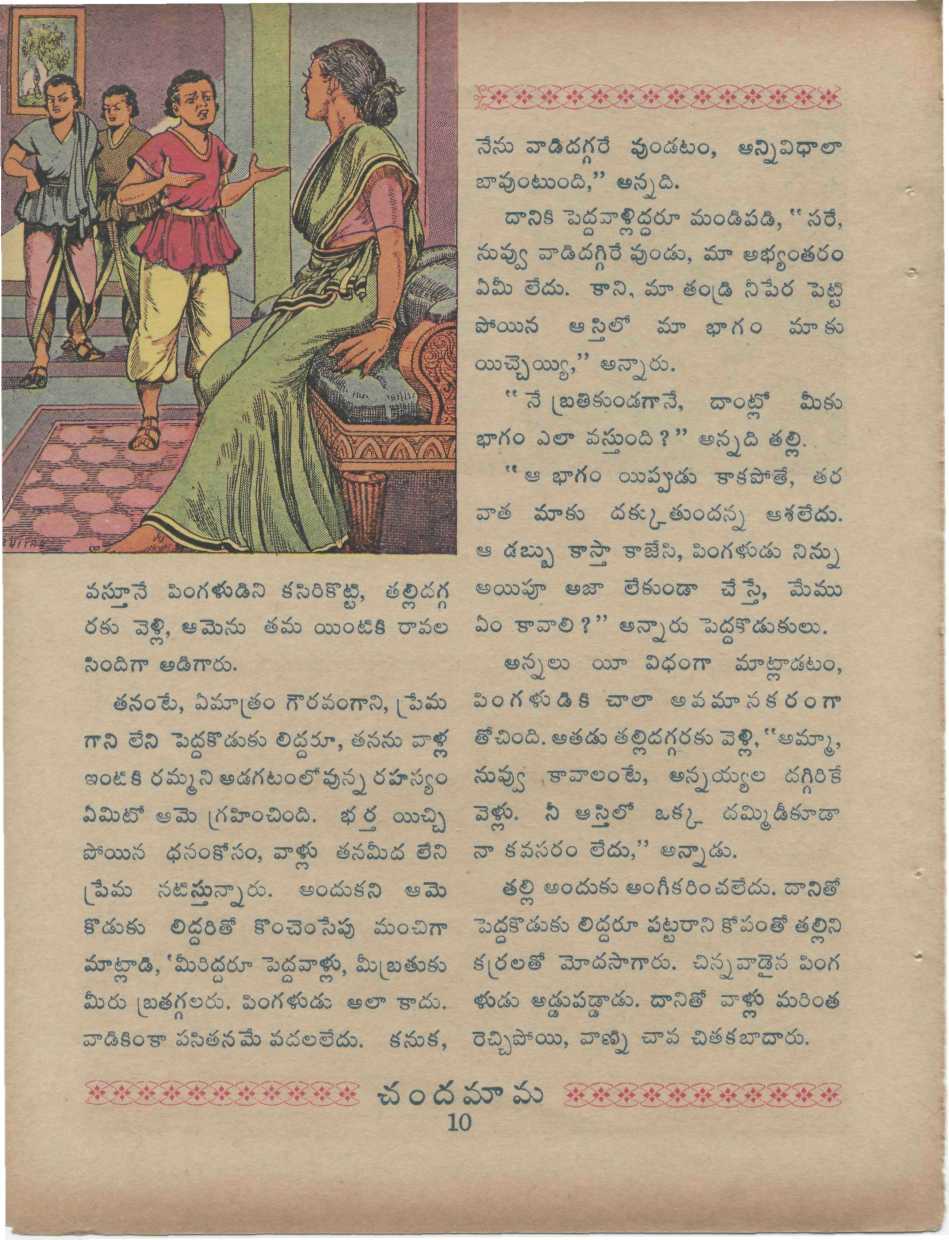 వస్తూనే పింగళుడిని కసిరికొట్టి, తల్లిదగ్గ
రకు వెళ్లి, ఆమెను తమ యింటికి రావల
సిందిగా అడిగారు.
తనంటే, ఏమాత్రం గౌరవంగాని, ప్రేమ
గాని లేని పెద్దకొడుకు లిద్దరూ, తనను వాళ్ల
ఇంటికి రమ్మని అడగటంలోవున్న రహస్యం
ఏమిటో ఆమె గ్రహించింది. భర్త యిచ్చి
పోయిన ధనంకోసం, వాళ్లు తనమీద లేని
ప్రేమ నటిస్తున్నారు. అందుకని ఆమె
కొడుకు లిద్దరితో కొంచెంసేపు మంచిగా
మాట్లాడి, ‘మీరిద్దరూ పెద్దవాళ్లు, మీబ్రతుకు
మీరు బ్రతగ్గలరు. పింగళుడు అలా కాదు.
వాడికింకా పసితనమే వదలలేదు. కనుక,
నేను వాడిదగ్గరే వుండటం, అన్నివిధాలా
బావుంటుంది,” అన్నది.
దానికి పెద్దవాళ్లిద్దరూ మండిపడి, “సరే,
నువ్వు వాడిదగ్గిరే వుండు, మా అభ్యంతరం
ఏమీ లేదు. కాని, మా తండ్రి నీపేర పెట్టి
పోయిన ఆస్తిలో మా భాగం మాకు
యిచ్చెయ్యి,” అన్నారు.
“నే బ్రతికుండగానే, దాంట్లో మీకు
భాగం ఎలా వస్తుంది?” అన్నది తల్లి.
“ఆ భాగం యిప్పుడు కాకపోతే, తర
వాత మాకు దక్కుతుందన్న ఆశలేదు.
ఆ డబ్బు కాస్తా కాజేసి, పింగళుడు నిన్ను
అయిపూ అజా లేకుండా చేస్తే, మేము
ఏం కావాలి?” అన్నారు పెద్దకొడుకులు.
అన్నలు యీ విధంగా మాట్లాడటం,
పింగళుడికి చాలా అవమానకరంగా
తోచింది. అతడు తల్లిదగ్గరకు వెళ్లి, “అమ్మా,
నువ్వు కావాలంటే, అన్నయ్యల దగ్గిరికే
వెళ్లు. నీ ఆస్తిలో ఒక్క దమ్మిడీకూడా
నా కవసరం లేదు,” అన్నాడు.
తల్లి అందుకు అంగీకరించలేదు. దానితో
పెద్దకొడుకు లిద్దరూ పట్టరాని కోపంతో తల్లిని
కర్రలతో మోదసాగారు. చిన్నవాడైన పింగ
ళుడు అడ్డుపడ్డాడు. దానితో వాళ్లు మరింత
రెచ్చిపోయి, వాణ్ని చావ చితకబాదారు.
చందమామ
10